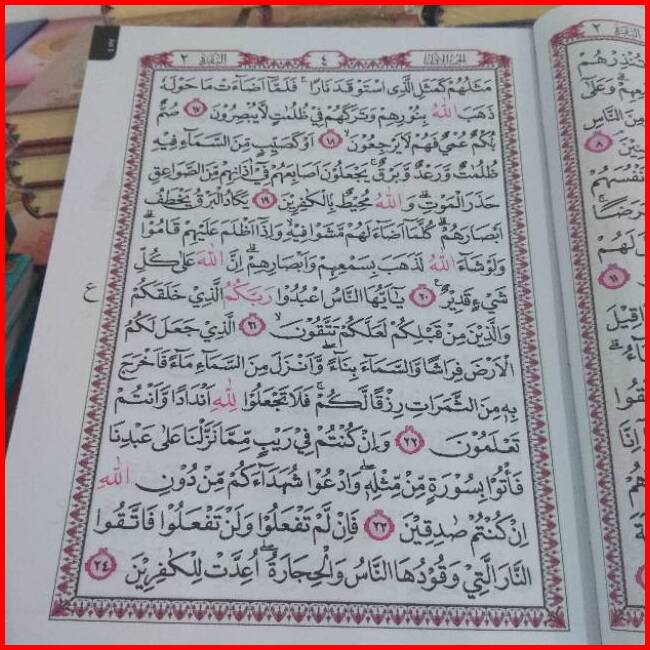 الجزء الأول
٤
البقرة ٢
مَثَلُهُمْ كَمَثَلِ الَّذِى اسْتَوْقَدَ نَارًا ۚ فَلَمَّآ اَضَآءَتْ مَا حَوْلَهٗ
ذَهَبَ اللّٰهُ بِنُوْرِهِمْ وَتَرَكَهُمْ فِيْ ظُلُمٰتٍ لَّا يُبْصِرُوْنَ ١٧ صُمٌّ
بُكْمٌ عُمْيٌ فَهُمْ لَا يَرْجِعُوْنَ ۙ ١٨ اَوْ كَصَيِّبٍ مِّنَ السَّمَآءِ فِيْهِ
ظُلُمٰتٌ وَّرَعْدٌ وَّبَرْقٌ ۚ يَجْعَلُوْنَ اَصَابِعَهُمْ فِيْٓ اٰذَانِهِمْ مِّنَ الصَّوَاعِقِ
حَذَرَ الْمَوْتِ ۗ وَاللّٰهُ مُحِيْطٌ بِالْكٰفِرِيْنَ ١٩ يَكَادُ الْبَرْقُ يَخْطَفُ
اَبْصَارَهُمْ ۗ كُلَّمَآ اَضَآءَ لَهُمْ مَّشَوْا فِيْهِ ۙ وَاِذَآ اَظْلَمَ عَلَيْهِمْ قَامُوْا ۗ
وَلَوْ شَآءَ اللّٰهُ لَذَهَبَ بِسَمْعِهِمْ وَاَبْصَارِهِمْ ۗ اِنَّ اللّٰهَ عَلٰى كُلِّ
شَيْءٍ قَدِيْرٌ ࣖ ٢٠ يٰٓاَيُّهَا النَّاسُ اعْبُدُوْا رَبَّكُمُ الَّذِيْ خَلَقَكُمْ
وَالَّذِيْنَ مِنْ قَبْلِكُمْ لَعَلَّكُمْ تَتَّقُوْنَ ۙ ٢١ الَّذِيْ جَعَلَ لَكُمُ
الْاَرْضَ فِرَاشًا وَّالسَّمَآءَ بِنَآءً ۖ وَّاَنْزَلَ مِنَ السَّمَآءِ مَآءً فَاَخْرَجَ
بِهٖ مِنَ الثَّمَرٰتِ رِزْقًا لَّكُمْ ۚ فَلَا تَجْعَلُوْا لِلّٰهِ اَنْدَادًا وَّاَنْتُمْ
تَعْلَمُوْنَ ٢٢ وَاِنْ كُنْتُمْ فِيْ رَيْبٍ مِّمَّا نَزَّلْنَا عَلٰى عَبْدِنَا
فَأْتُوْا بِسُوْرَةٍ مِّنْ مِّثْلِهٖ ۖ وَادْعُوْا شُهَدَآءَكُمْ مِّنْ دُوْنِ اللّٰهِ
اِنْ كُنْتُمْ صٰدِقِيْنَ ٢٣ فَاِنْ لَّمْ تَفْعَلُوْا وَلَنْ تَفْعَلُوْا فَاتَّقُوا
النَّارَ الَّتِيْ وَقُوْدُهَا النَّاسُ وَالْحِجَارَةُ ۖ اُعِدَّتْ لِلْكٰفِرِيْنَ ٢٤
ع